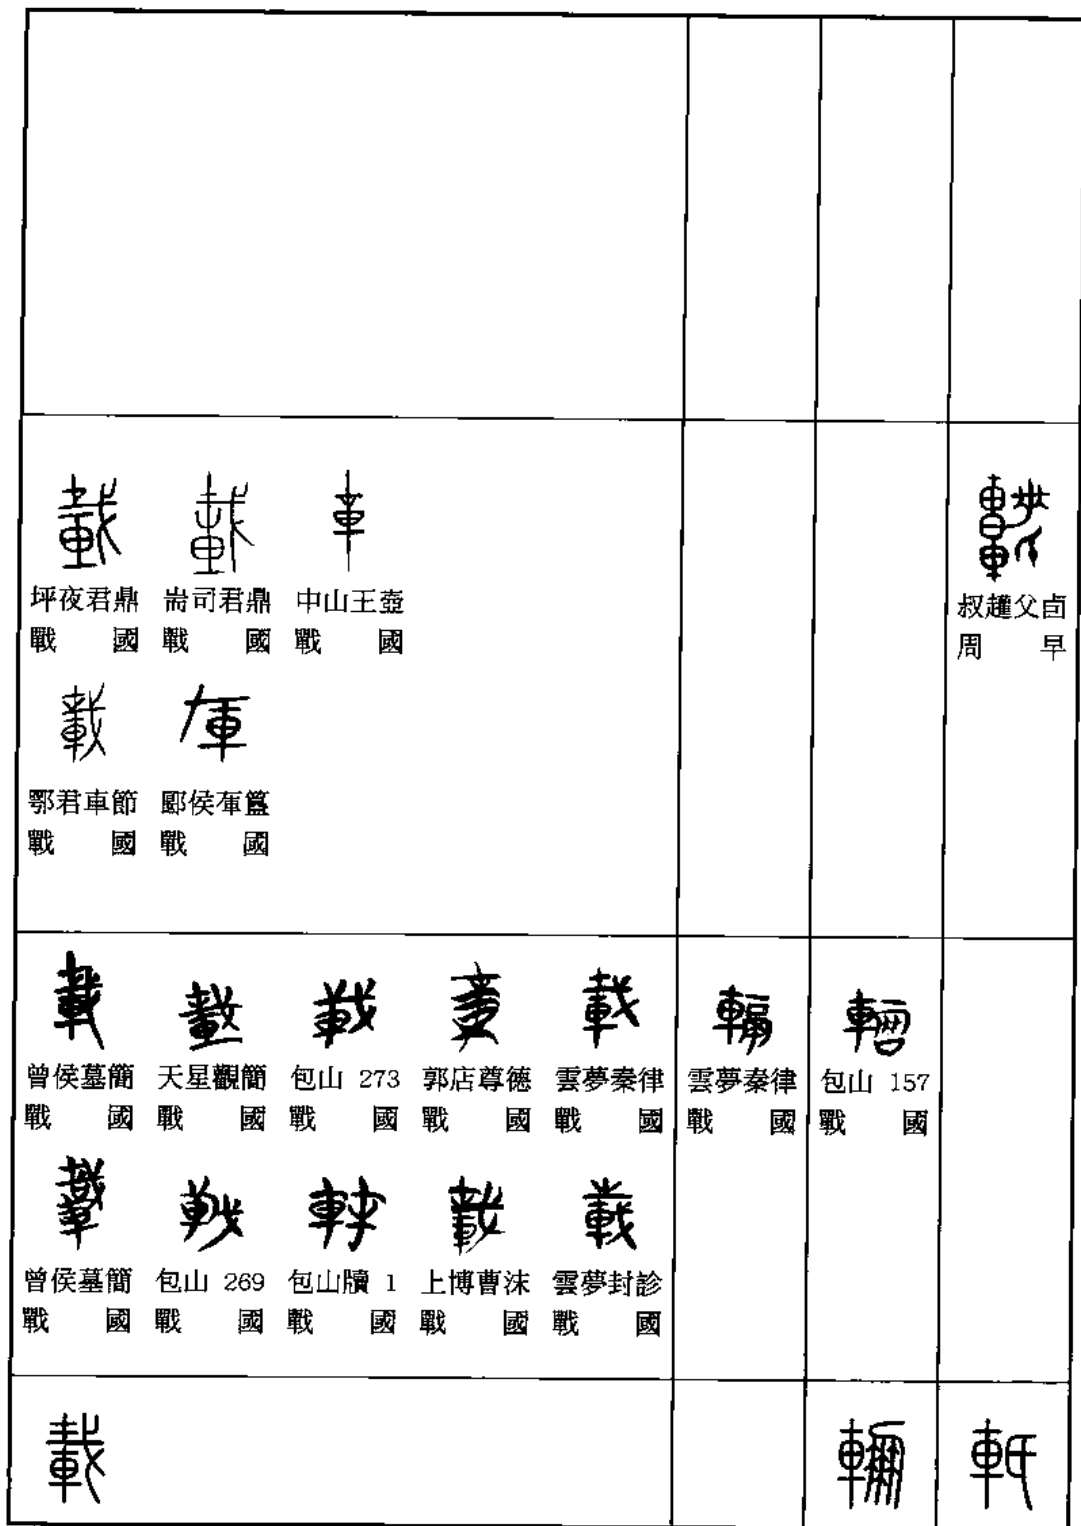 坪夜君鼎 戰國
𠱾司君鼎 戰國
中山王壺 戰國
叔趯父卣 周早
鄂君車節 戰國
郾侯𨋢簋 戰國
曾侯墓簡 戰國
天星觀簡 戰國
包山 273 戰國
郭店尊德 戰國
雲夢秦律 戰國
雲夢秦律 戰國
包山 157 戰國
曾侯墓簡 戰國
包山 269 戰國
包山牘 1 戰國
上博曹沫 戰國
雲夢封診 戰國
載